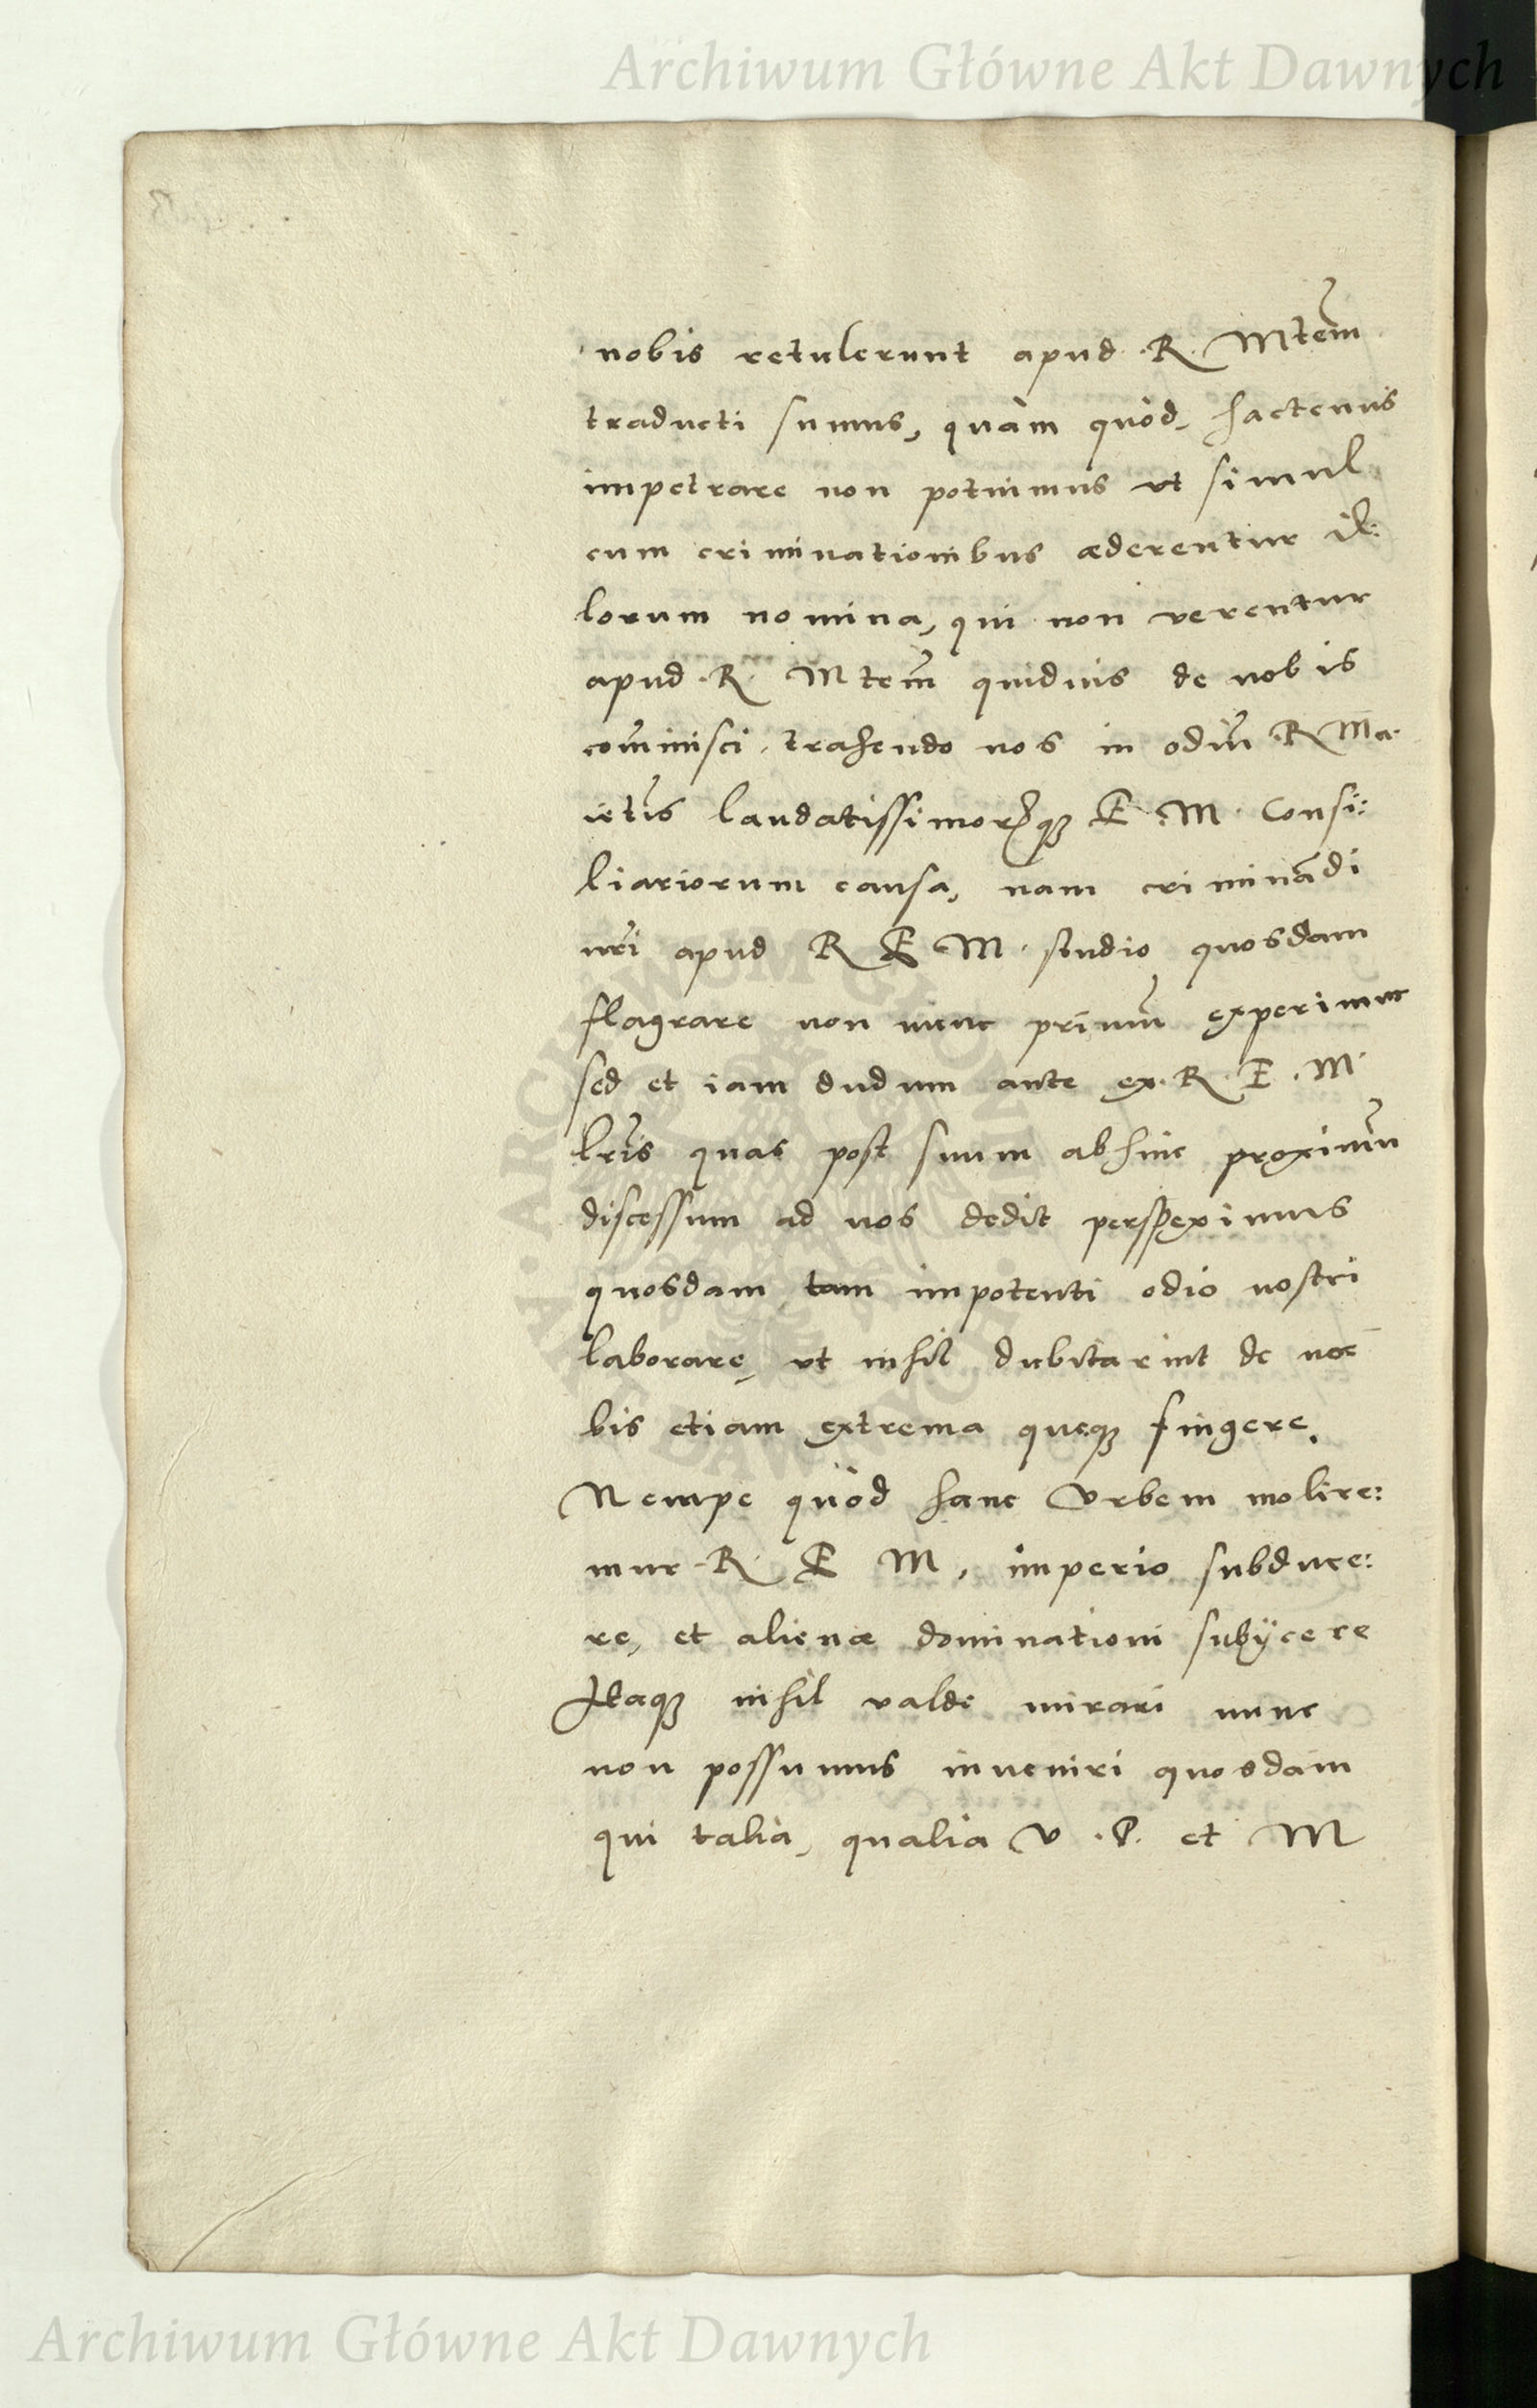 Archiwum Główne Akt Dawnych
nobis retulerunt apud .R. Mtem̃
traducti sumus, quàm quòd hactenus
impetrare non potuimus vt simul
cum criminationibus æderentur il:
lorum nomina, qui non verentur
apud .R. Mtem̃ quiduis de nobis
com̃inisci, trahendo nos in odiũ .R Ma.
ietis̃ laudatissimorꝫq E .M. Consi:
liariorum causa, nam criminãdi
nr̃i apud R E M. studio quosdam
flagrare non nunc primũ experimur
sed et iam dudum ante ex .R. E .M.
lr̃is quas post suum abhinc proximũ
discessum ad nos dedit perspeximus
quosdam tam impotenti odio nostri
laborare, vt nihil dubitarint de no=
bis etiam extrema queqꝫ fingere.
Nempe quòd hanc Vrbem molire:
mur .R. E M, imperio subduce:
re, et alienæ dominationi subÿcere
Itaqꝫ nihil valde mirari nunc
non possumus inueniri quosdam
qui talia, qualia V .P. et M
ARCHIWUM GŁÓWNE AKT DAWNYCH
Archiwum Główne Akt Dawnych